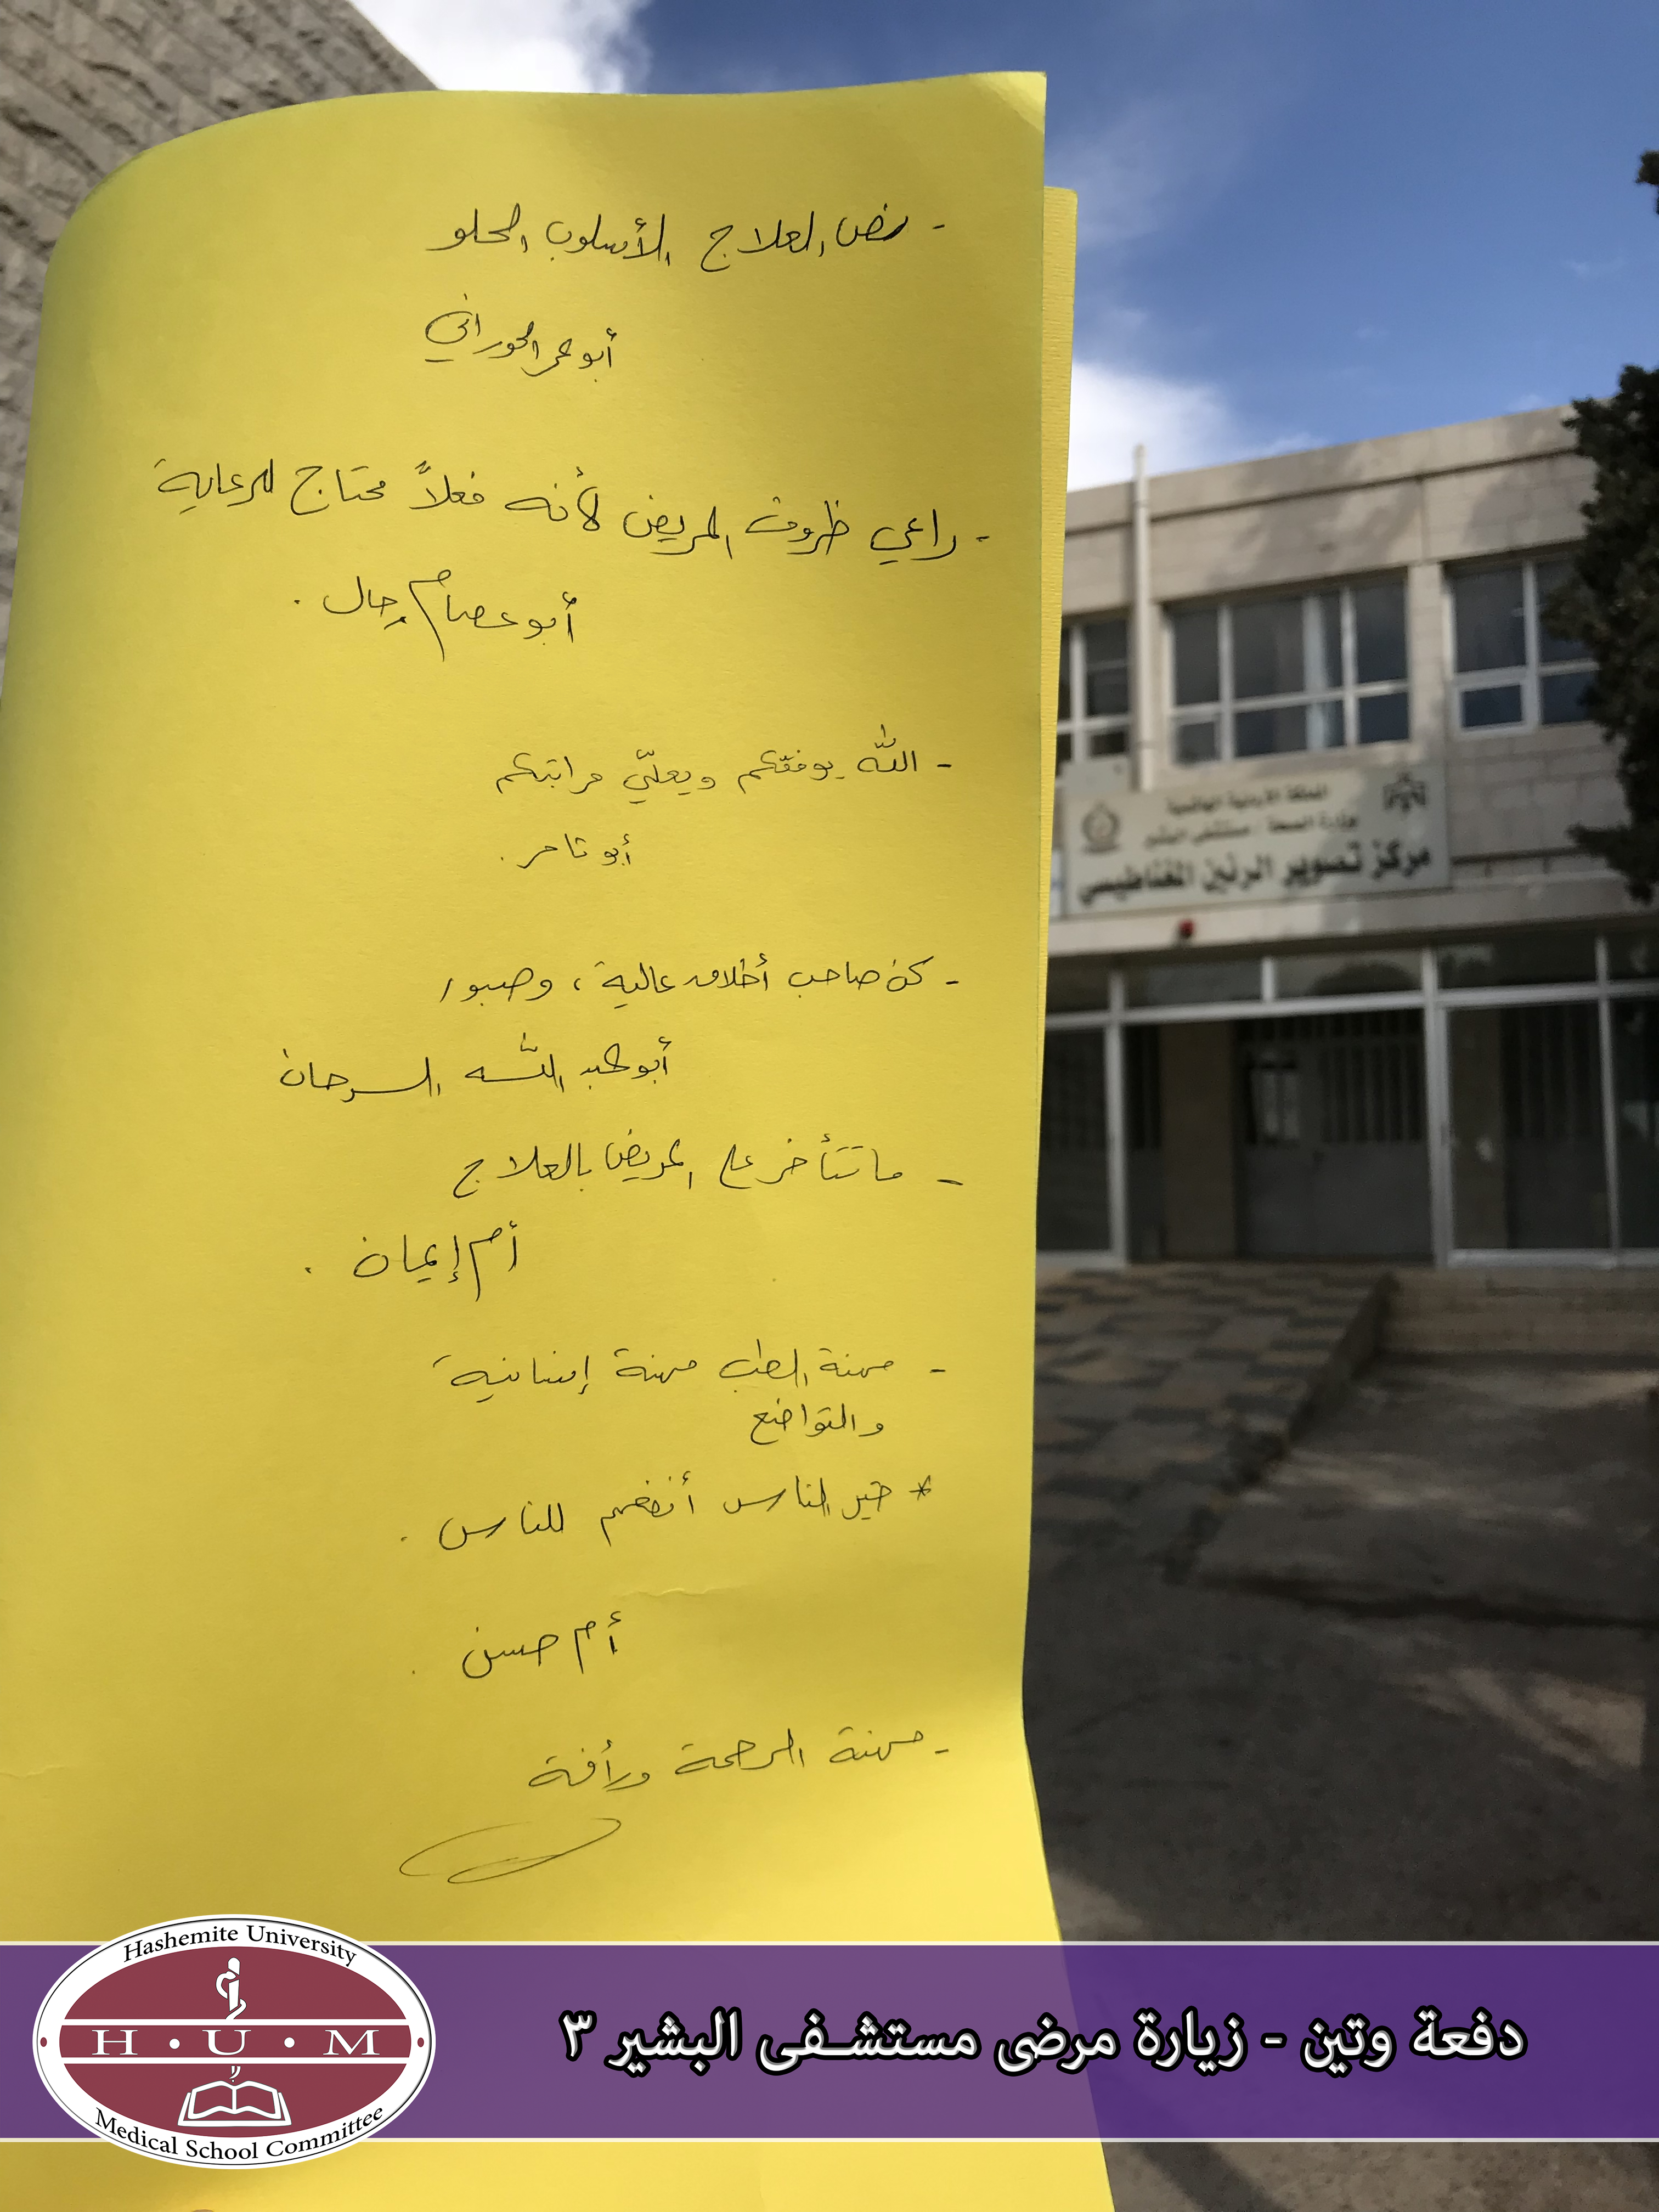 - نص العلاج الأسلوب الحلو
أبو عمر الحوراني
- راعي ظروف المريض لأنه فعلاً محتاج للرعاية
أبو عصام رحال.
- الله يوفقكم ويعلّي مراتبكم
أبو تامر.
- كن صاحب أخلاق عالية، وصبور
أبو عبد الله السرحان
- ما تتأخر على المريض بالعلاج
أم إيمان.
- مهنة الطب مهنة إنسانية
والتواضع
* خير الناس أنفعهم للناس.
أم حسن.
- مهنة الرحمة ورأفة
المملكة الأردنية الهاشمية
وزارة الصحة / مستشفى البشير
مركز تصوير الرنين المغناطيسي
Hashemite University
H · U · M
Medical School Committee
دفعة وتين - زيارة مرضى مستشفى البشير ٣